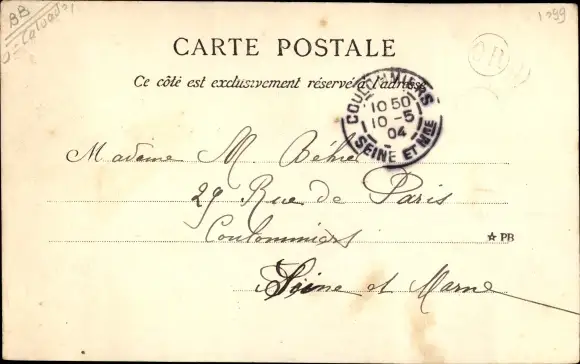 BB
Calvados
1099
CARTE POSTALE
Ce côté est exclusivement réservé à l'adresse
COULOMMIERS
10 50
10 -5
04
SEINE ET MNE
Madame M.
29 Rue de Paris
Coulommiers
☆ PB
Seine et Marne